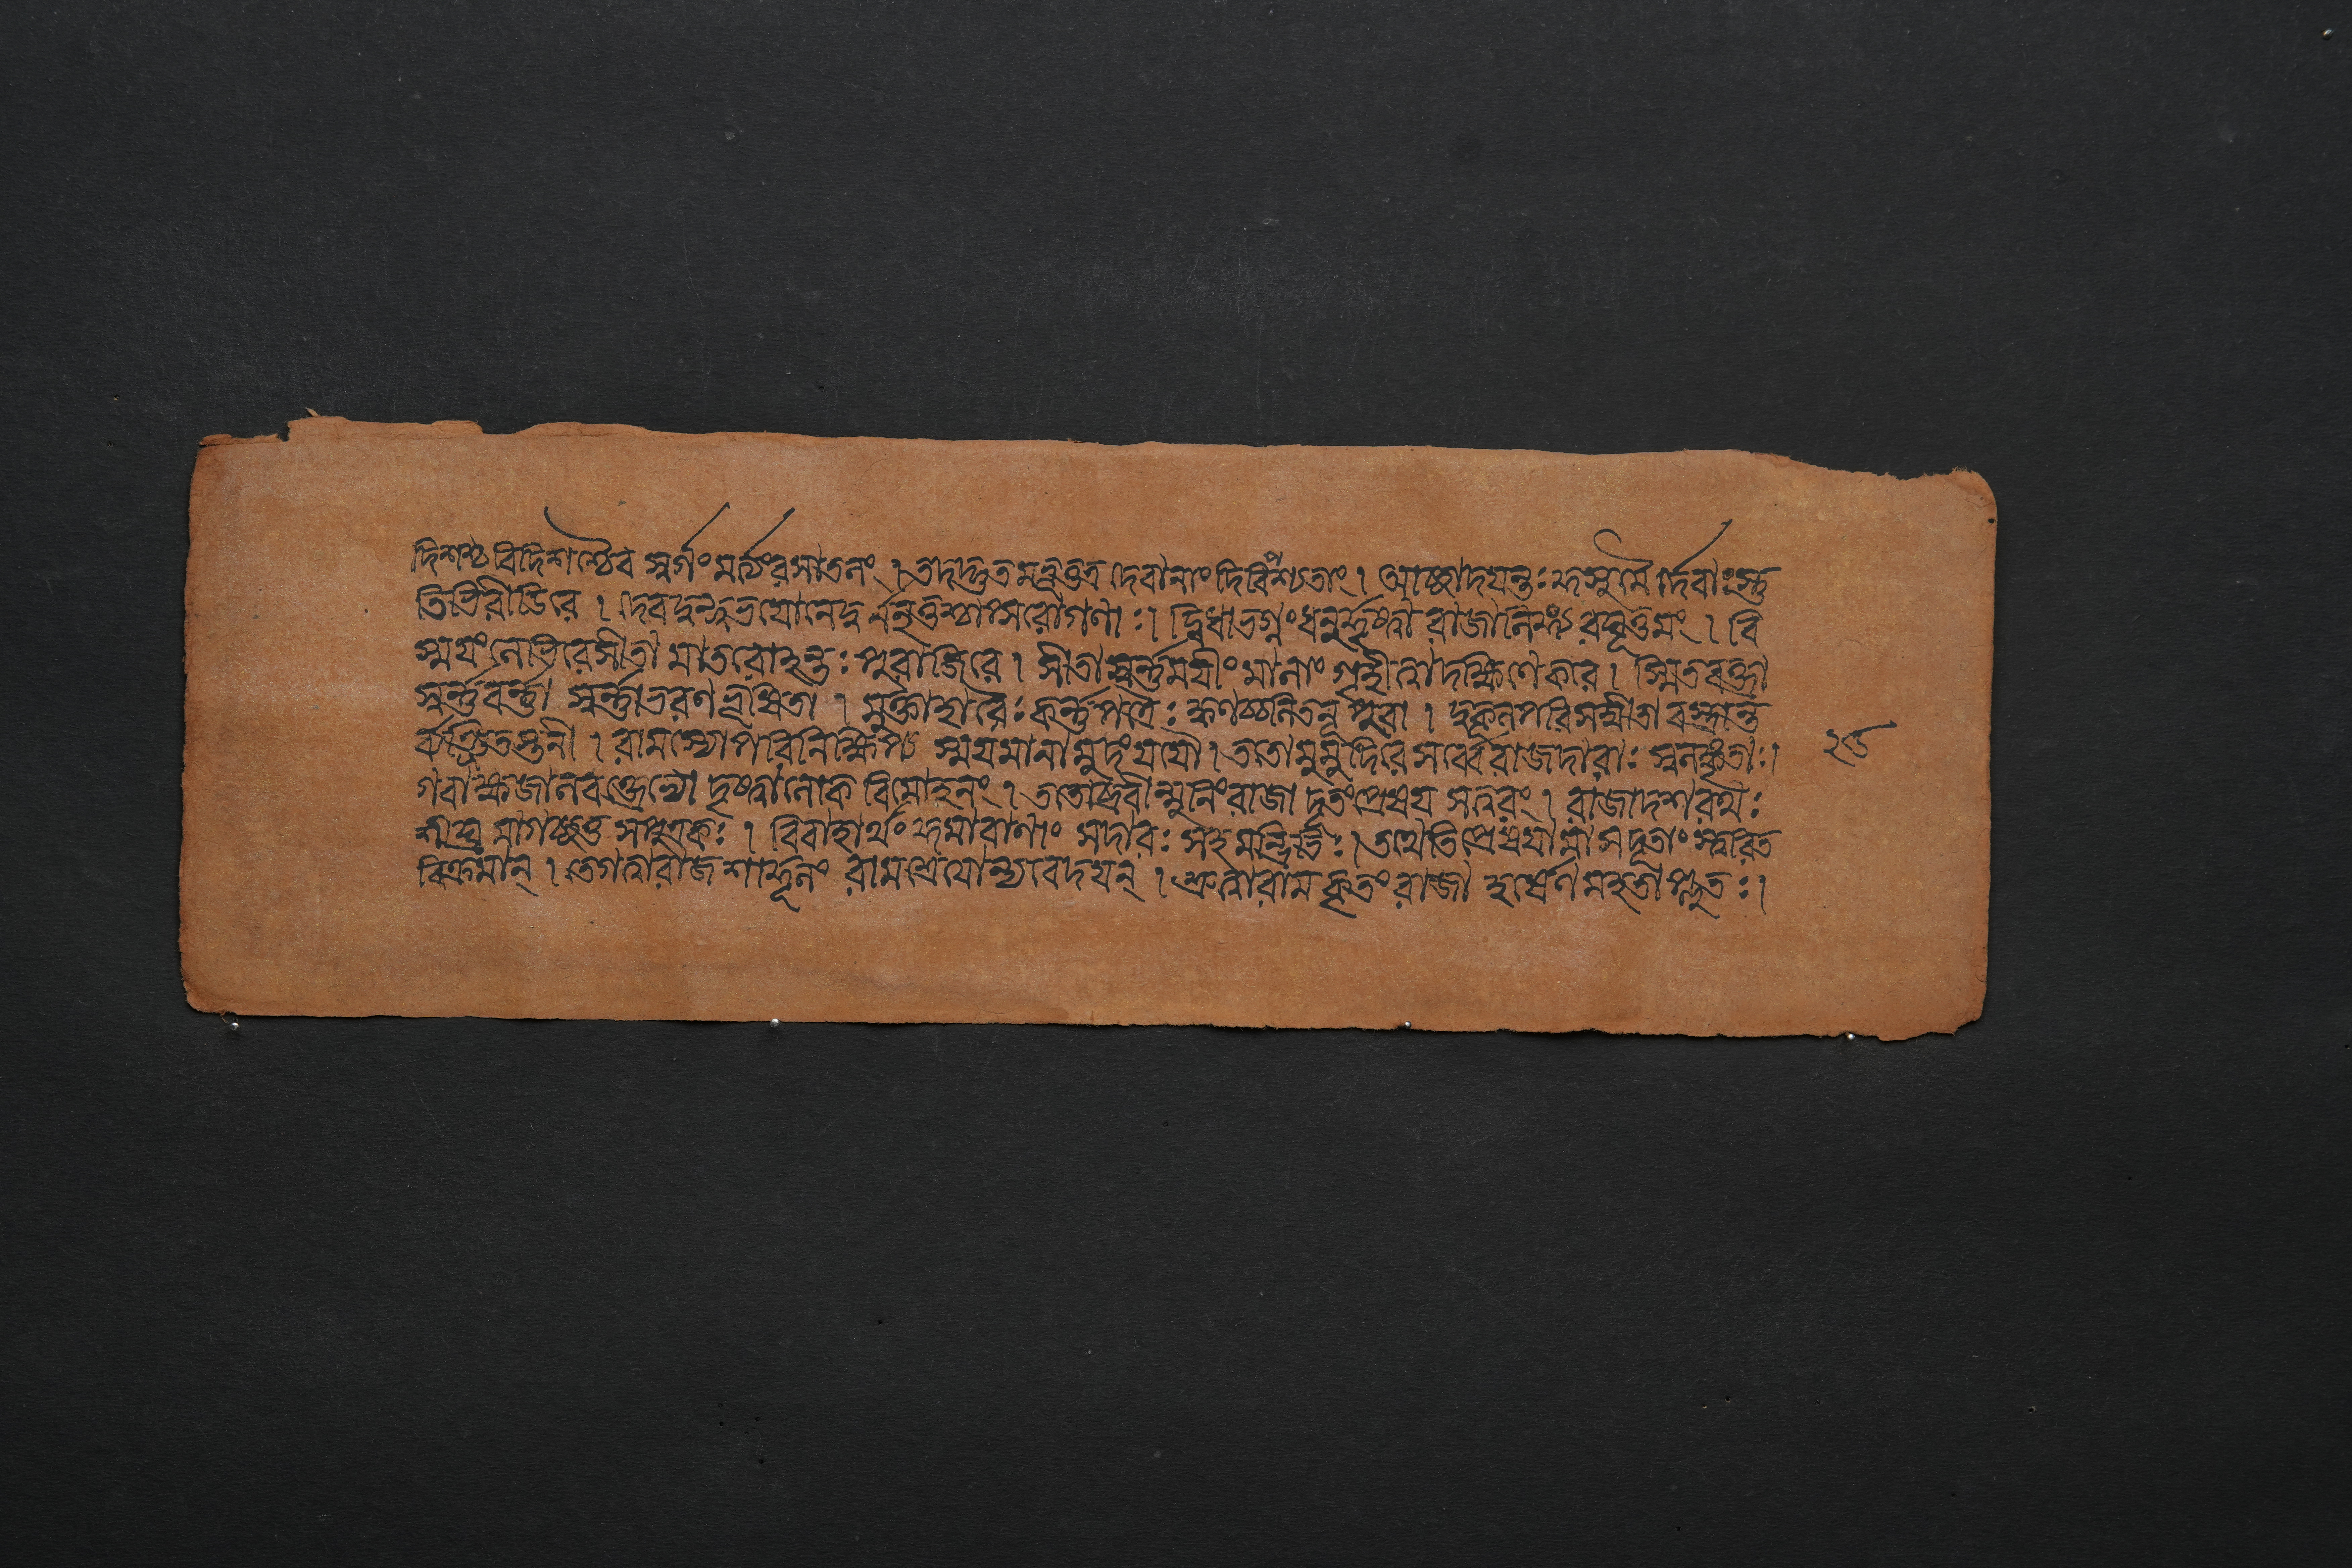 দিশশ্চ বিদিশশ্চৈব স্বর্গং মর্ত্যং রসাতলং । তদদ্ভুতমভূত্তত্র দেবানাং দিবিপশ্যতাং । আচ্ছাদয়ন্তঃ কুসুমৈর্দেবাঃ স্তু
তিভিরীডিরে । দেবদুন্দুভয়োনেদুর্ননৃতুশ্চাপ্সরোগণাঃ । দ্বিধাভগ্নং ধনুর্দৃষ্ট্বা রাজালিঙ্গ্য রঘূত্তমং । বি
স্ময়ং লেভিরেসীতা মাতরোহন্তঃ পুরাজিরে । সীতা স্বর্ণময়ীং মালাং গৃহীত্বাদক্ষিণেকরে । স্মিতবক্ত্রা
স্বর্ণবর্ণা স্বর্ণাভরণভূষিতা । মুক্তাহারৈঃ কর্ণপত্রৈঃ ক্বণচ্চলিতনূপুরা । দুকূলপরিসম্বীতা বস্ত্রান্ত
র্ব্যঞ্জিতস্তনী । রামস্যোপরিবিনিক্ষিপ্য স্ময়মানামুদং যযৌ । ততোমুমুদিরে সর্ব্বেরাজদারাঃ স্বলঙ্কৃতাঃ । ২৬
গবাক্ষজালবক্ত্রেভ্যো দৃষ্ট্বালোক বিমোহনং । ততোব্রবীন্মুনিং রাজা দূতং প্রেষয় সত্বরং । রাজাদশরথঃ
শীঘ্র মাগচ্ছতু সপুত্রকঃ । বিবাহার্থং কুমারাণাং সদারঃ সহমন্ত্রিভিঃ । তথেতিপ্রেষয়ামাসদূতাং স্ত্বরিত
বিক্রমান্ । তেগত্বারাজশার্দূলং রামশ্রেয়োন্যবেদয়ন্ । শ্রুত্বারামকৃতং রাজা হর্ষেণমহতাপ্লুতঃ ।